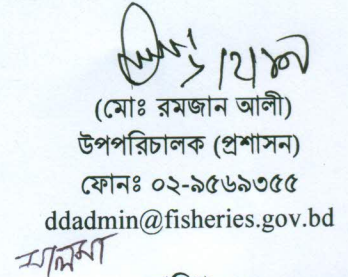 (মোঃ রমজান আলী)
উপপরিচালক (প্রশাসন)
ফোনঃ ০২-৯৫৬৯৩৫৫
ddadmin@fisheries.gov.bd
সালমা